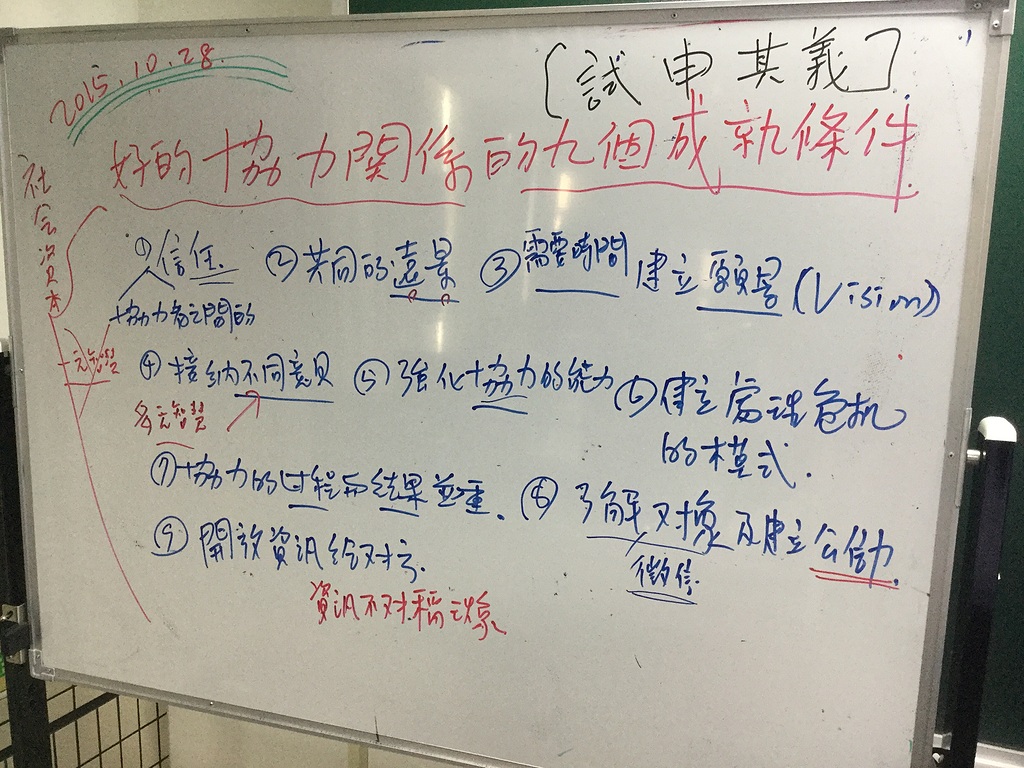 2015.10.28.
[試申其義].
好的協力關係的九個成就條件
社会資本
①信任 ②共同的遠景 ③需要時間建立願景(Vision)
協力者之間的
一元智慧 ④接納不同意見 ⑤強化協力的能力 ⑥建立處理危机
多元智慧
的模式.
⑦協力的过程与結果並重. ⑧了解对象及建立公信力.
徵信.
⑨開放資訊給对方.
資訊不对稱現象